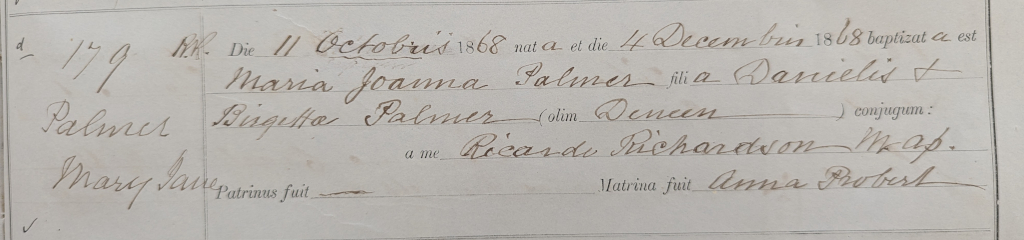 d
179 R.R. Die 11 Octobris 1868 nat a et die 4 Decembris 1868 baptizat a est
Maria Joanna Palmer fili a Danielis &
Palmer Birgettæ Palmer (olim Deneen ) conjugum:
a me Ricardo Richardson M. ap.
Mary Jane Patrinus fuit — Matrina fuit Anna Probert